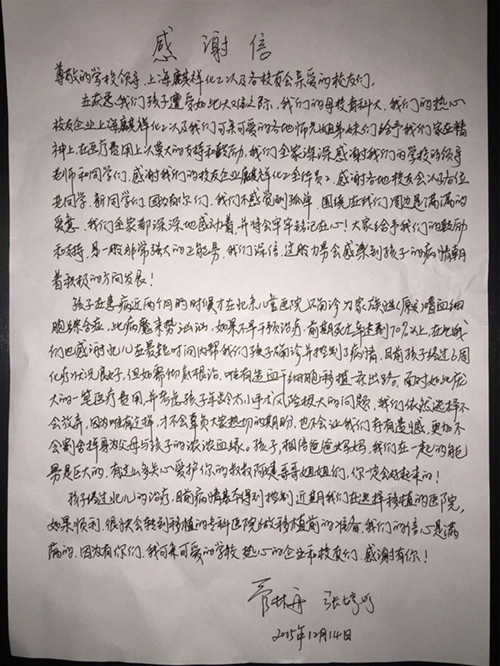 感谢信
尊敬的学校领导、上海麒祥化工以及各校友会亲爱的校友们、
在获悉我们孩子遭受如此大的之际，我们的母校青科大，我们的热心
校友企业上海麒祥化工以及我们可亲可爱的各地师兄姐弟妹们给予我们家在精
神上、在医疗费用上以莫大的支持和鼓励，我们全家深深感谢我们的学校的领导
老师和同学们，感谢我们的校友企业麒祥化工全体员工，感谢各地校友会以及各位
老同学、新同学们，因为有你们，我们不感觉到孤单，围绕在我们周边是满满的
爱意，我们全家都深深地感动着，并将会牢牢铭记在心！大家给予我们的鼓励
和支持，是一股非常强大的正能量，我们深信，这股力量会感染到孩子的病情朝
着积极的方向发展！
孩子在患病近两个月的时候才在北京儿童医院确诊为家族性（原）嗜血细
胞综合症，此病魔来势汹汹，如果不早干预治疗，前期死亡率达到70%以上，在此我
们也感谢北儿在最短时间内帮我们孩子确诊并控制了病情，目前孩子经过8周
化疗状况良好，但如需彻底根治，唯有造血干细胞移植一条出路。面对如此庞
大的一笔医疗费用并考虑孩子年龄太小手术风险极大的问题，我们依然选择不
会放弃，因为唯有这样，才不会辜负大家热切的期盼，也不会让我们存有遗憾，更加不
会割舍掉身为父母与孩子的浓浓血缘。孩子，相信爸爸妈妈，我们在一起的能
量是巨大的，有这么多关心爱护你的叔叔阿姨哥哥姐姐们，你一定会好起来的！
孩子经过北儿的治疗，目前病情基本得到控制，近期我们在选择移植的医院，
如果顺利，很快会转到移植的专科医院做移植前的准备，我们的信心是满
满的，因为有你们，我可亲可爱的学校、热心的企业和校友们，感谢有你！
2015年12月14日